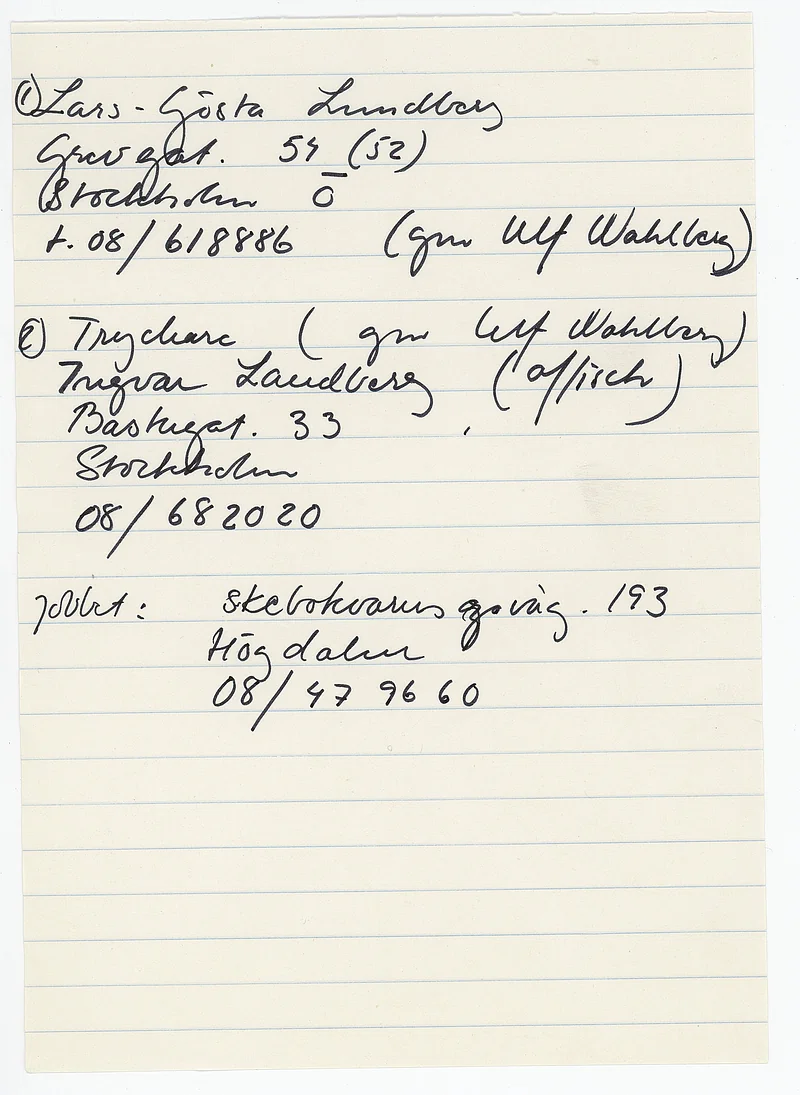 ① Lars-Gösta Lundberg
Grevgat. 54 (52)
Stockholm Ö
t. 08/618886 (gm Ulf Wahlberg)
② Tryckare (gm Ulf Wahlberg)
Ingvar Landberg (affisch)
Bastugat. 33
Stockholm
08/682020
jobbet: Skebokvarnsväg. 193
Högdalen
08/47 96 60